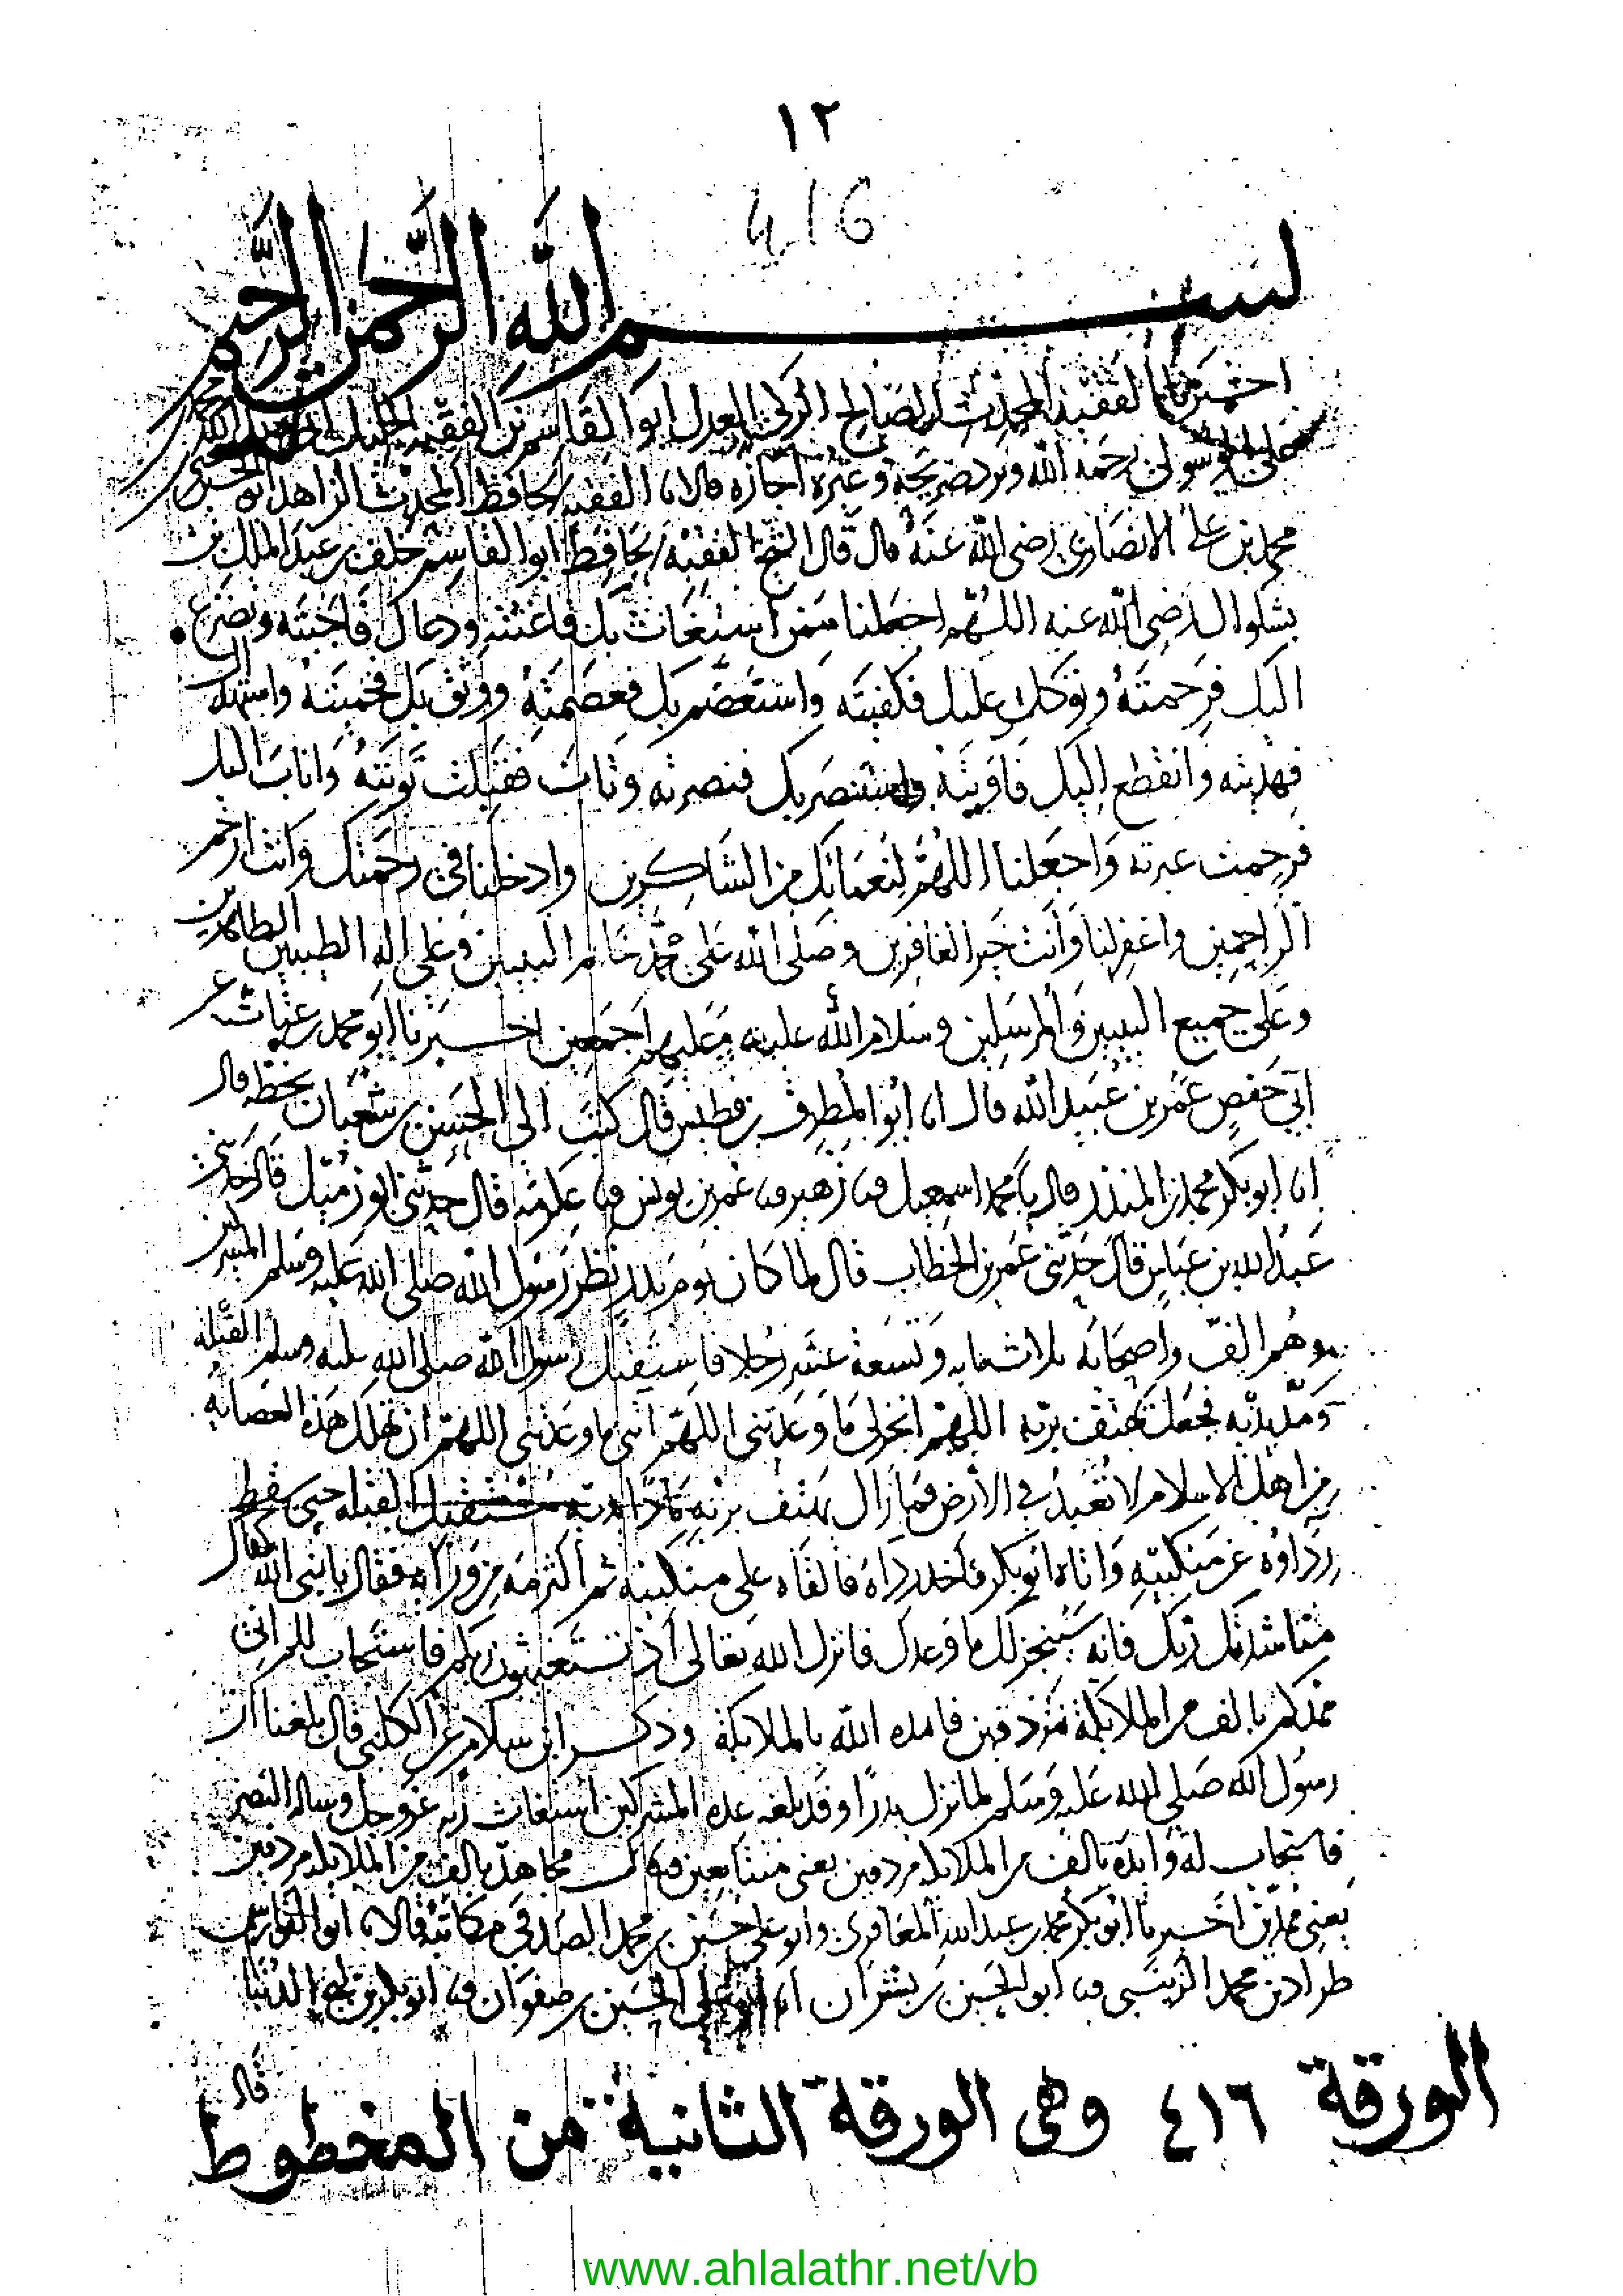 ١٢
416
بسم الله الرحمن الرحيم
اخبرنا الفقيه المحدث الصالح الزكي العدل ابو القاسم بن الفقيه الجليل
رحمه الله وبرد ضريحه وغيره اجازه قالا انا الفقيه الحافظ المحدث الزاهد ابو الحسن يحيى
محمد بن علي الانصاري رضي الله عنه قال قال الشيخ الفقيه الحافظ ابو القاسم خلف بن عبد الملك بن
بشكوال رضي الله عنه اللهم اجعلنا ممن استغاث بك فاغثته ودعاك فاجبته وتضرع
اليك فرحمته وتوكل عليك فكفيته واستعصم بك فعصمته ووثق بك فحميته واستهداك
فهديته وانقطع اليك فاويته واستنصر بك فنصرته وتاب فقبلت توبته واناب اليك
فرحمت عبرته واجعلنا اللهم لنعمائك من الشاكرين وادخلنا في رحمتك وانت ارحم
الراحمين واغفر لنا وانت خير الغافرين وصلى الله على محمد خاتم النبيين وعلى اله الطيبين الطاهرين
وعلى جميع النبيين والمرسلين وسلام الله عليه وعليهم اجمعين اخبرنا ابو محمد بن عتاب عن
ابي حفص عمر بن عبيد الله قال انا ابو المطرف بن فطيس قال كتب الي الحسن بن شعبان بخطه قال
انا ابو بكر محمد بن المنذر قال نا محمد اسمعيل نا زهير نا عمر بن يونس نا عكرمة قال حدثني ابو زميل قال حدثني
عبد الله بن عباس قال حدثني عمر بن الخطاب قال لما كان يوم بدر نظر رسول الله صلى الله عليه وسلم المشركين
وهم الف واصحابه ثلاث مايه وتسعة عشر رجلا فاستقبل رسول الله صلى الله عليه وسلم القبله
ومد يديه فجعل يهتف بربه اللهم انجز لي ما وعدتني اللهم اتني ما وعدتني اللهم ان تهلك هذه العصابه
من اهل الاسلام لا تعبد في الارض فما زال يهتف بربه مادا يديه مستقبل القبله حتى سقط
رداوه عن منكبيه واتاه ابو بكر فاخذ رداه فالقاه على منكبيه ثم التزمه من ورآيه فقال يا نبي الله كفاك
مناشدتك ربك فانه سينجز لك ما وعدك فانزل الله تعالى اذ تستغيثون ربكم فاستجاب لكم اني
ممدكم بالف من الملايكة مردفين فامده الله بالملايكة وذكر ابن سلام عن الكلبي قال بلغنا ان
رسول الله صلى الله عليه وسلم لما نزل بدرا وقد بلغه عده المشركين استغاث ربه عز وجل وساله النصر
فاستجاب له وايده بالف من الملايكه مردفين يعني متتابعين وقال مجاهد بالف من الملايكه مردفين
يعني ممدين اخبرنا ابو بكر محمد بن عبد الله المعافري وابو علي حسين بن محمد الصدفي مكاتبة قالا نا ابو الفوارس
طراد بن محمد الزينبي نا ابو الحسين بن بشران انا ابو علي الحسين بن صفوان نا ابو بكر بن ابي الدنيا
قال
الورقة ٤١٦ وهي الورقة الثانية من المخطوط
www.ahlalathr.net/vb